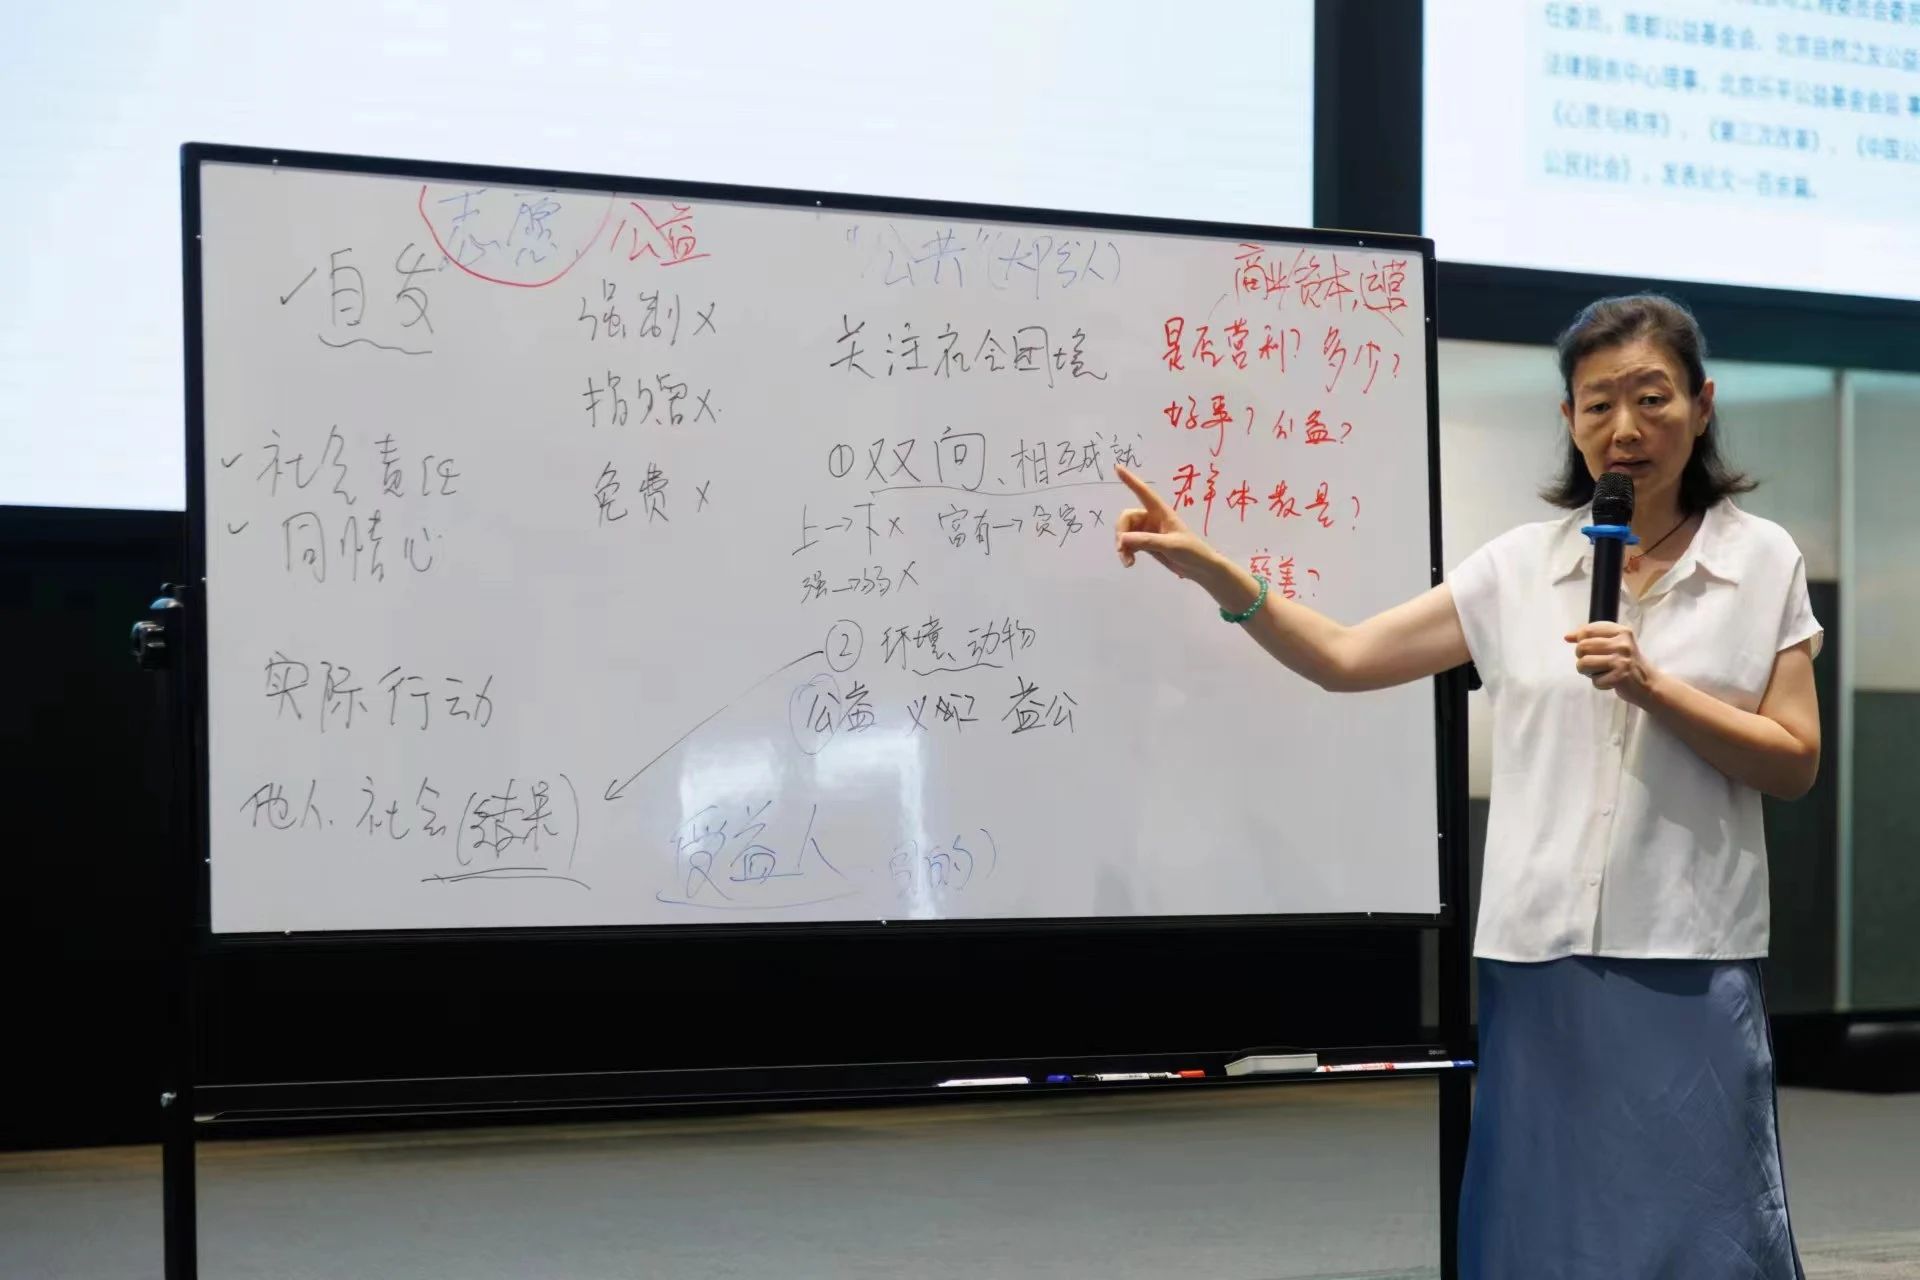 任委员，南都公益基金会、北京自然之友公益
法律服务中心理事，北京乐平公益基金会监事
《心灵与秩序》，《第三次改革》，《中国公
公民社会》，发表论文一百余篇。
志愿 公益
自发
强制×
捐赠×
免费×
社会责任
同情心
实际行动
他人、社会(结果)
"公共"(陌生人)
关注社会困境
①双向、相互成就
上→下× 富有→贫穷×
强→弱×
②环境、动物
公益 益公
受益人 目的)
商业资本,运营
是否营利?多少?
好事?公益?
群体散是?
慈善?